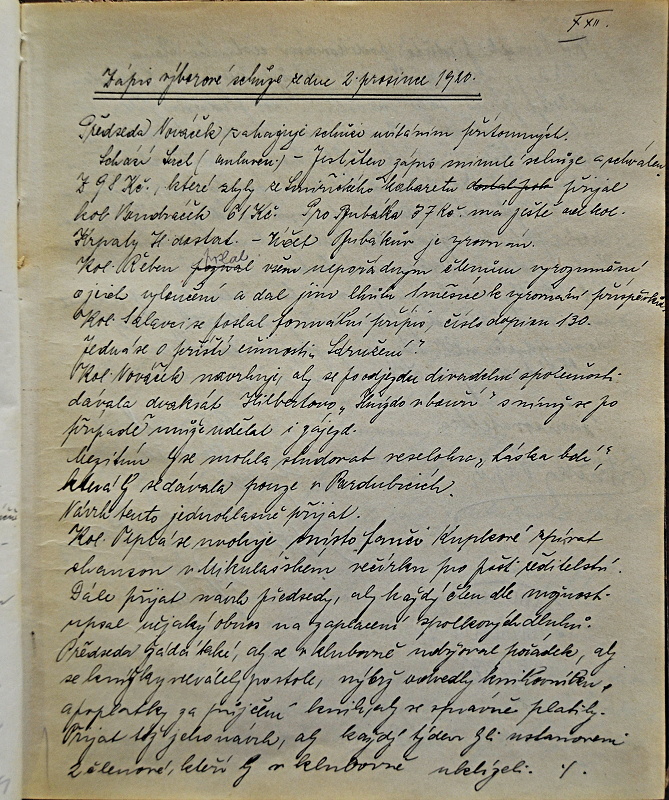 XXII.
Zápis výborové schůze ze dne 2. prosince 1920.
Předseda Nováček zahajuje schůzi uvítáním přítomných.
Schází Srel (omluven) – Jest čten zápis minulé schůze a schválen
Z 98 Kč, které zbyly ze Smíříckého Kabaretu dostal pob přijal
kol Vondráček 61 Kč. Pro Bubáka 37 Kč. má ještě od kol.
Krpaty H dostat. – Účet Bubákův je srovnán.
Kol. Řeben poslal všem nepořádným členům vyrozumění
o jich vyloučení a dal jim lhůtu 1 měsíce k vyrovnání příspěvků.
Kol. se poslal formální přípis, číslo dopisu 130.
Jedná se o příští činnosti „Sdružení“?
Kol. Nováček navrhuje, aby se po odjezdu divadelní společnosti
dávala dvakrát Hilbertovo „Hnízdo v bouři“ s nímž se po
případě může udělat i zájezd.
Mezitím by se mohla studovat veselohra „Láska bdí“,
která by se dávala pouze v Pardubicích.
Návrh tento jednohlasně přijat.
Kol. Pipba se uvoluje místo Kupkové zpívat
chanson v Mikulášském večírku pro pošt. ředitelství.
Dále přijat návrh předsedy, aby každý člen dle možnosti
upsal nějaký obnos na zaplacení spolkových dluhů.
Předseda žádá také, aby se v klubovně udržoval pořádek, aby
se knížky neválely po stole, nýbrž odvedly knihovníku,
a poplatky za půjčení knih, aby se správně platily.
Přijat též jeho návrh, aby každý týden byli ustanoveni
2 členové, kteří by v klubovně uklízeli. ./.